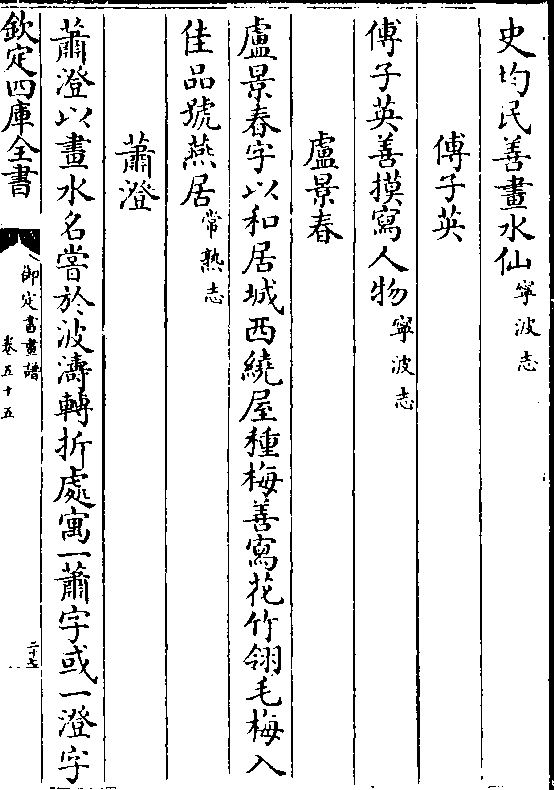 史均民善畫水仙寧波志
傅子英
傅子英善摸寫人物寧波志
盧景春
盧景春字以和居城西繞屋種梅善寫花竹翎毛梅入
佳品號燕居常熟志
蕭澄
蕭澄以畫水名嘗於波濤轉折處寓一蕭字或一澄字
欽定四庫全書
御定書畫譜
卷五十五